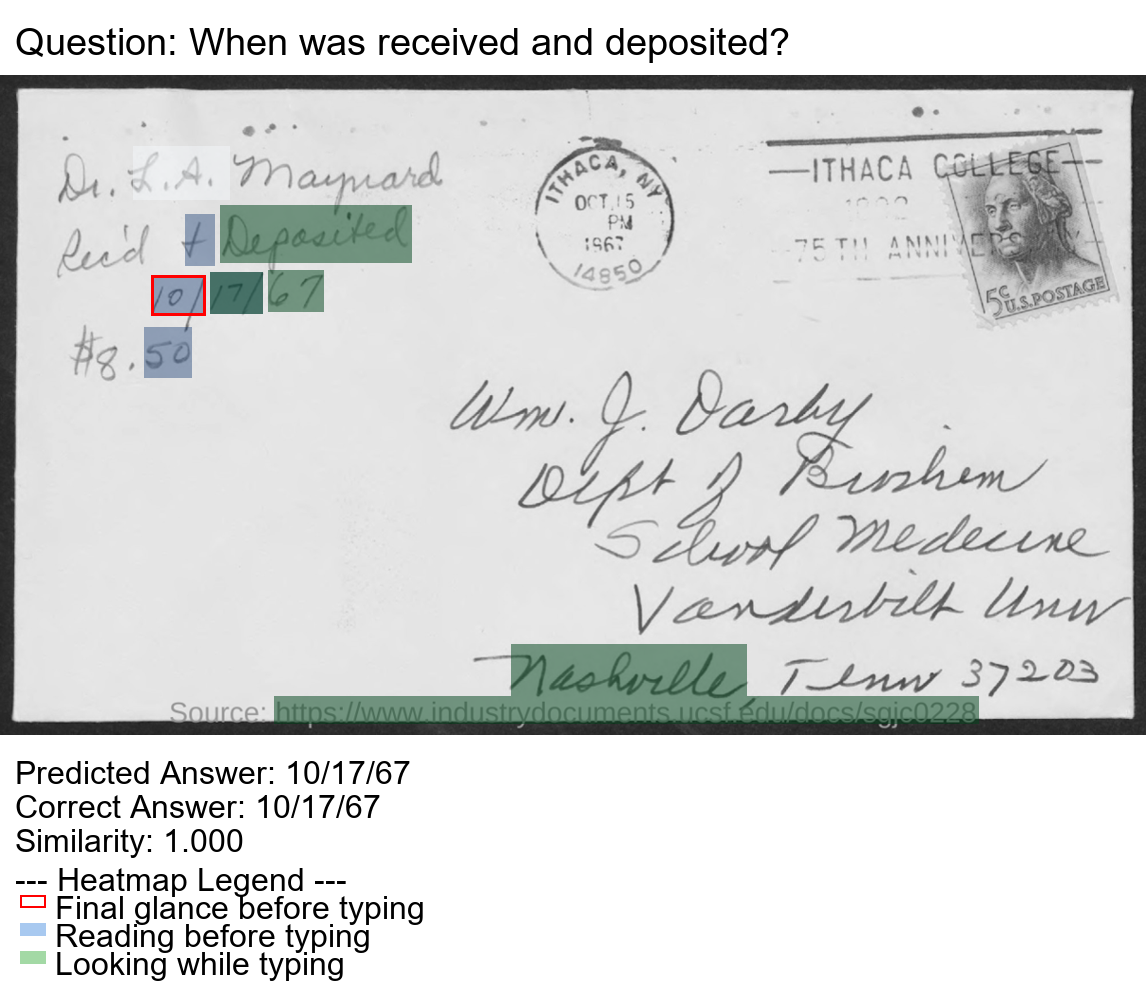 Question: When was received and deposited?
Dr. L.A. Maynard
Rec'd + Deposited
10/17/67
$8.50
ITHACA, NY
OCT.15
PM
1967
14850
ITHACA COLLEGE
75TH ANNIVERS
5c U.S.POSTAGE
Wm. J. Darby
Dept of Biochem
School Medecine
Vanderbilt Univ
Nashville, Tenn 37203
Source: https://www.industrydocuments.ucsf.edu/docs/sgjc0228
Predicted Answer: 10/17/67
Correct Answer: 10/17/67
Similarity: 1.000
--- Heatmap Legend ---
Final glance before typing
Reading before typing
Looking while typing